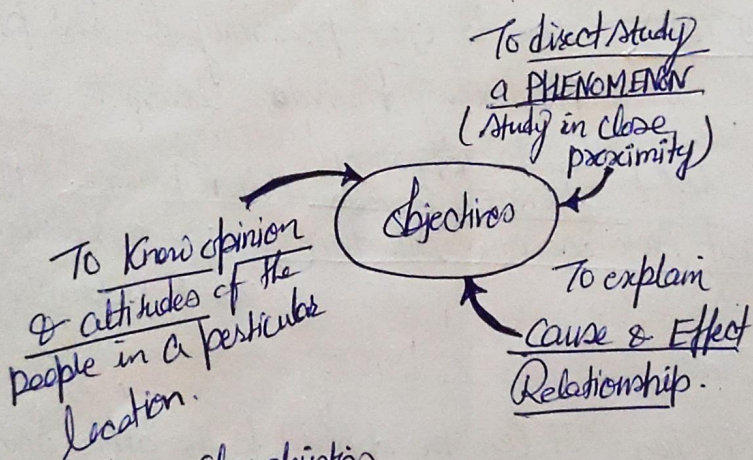 To disect study
a PHENOMENON
(study in close
proximity)
objectives
To Know opinion
& attitudes of the
people in a perticular
location.
To explain
Cause & Effect
Relationship.